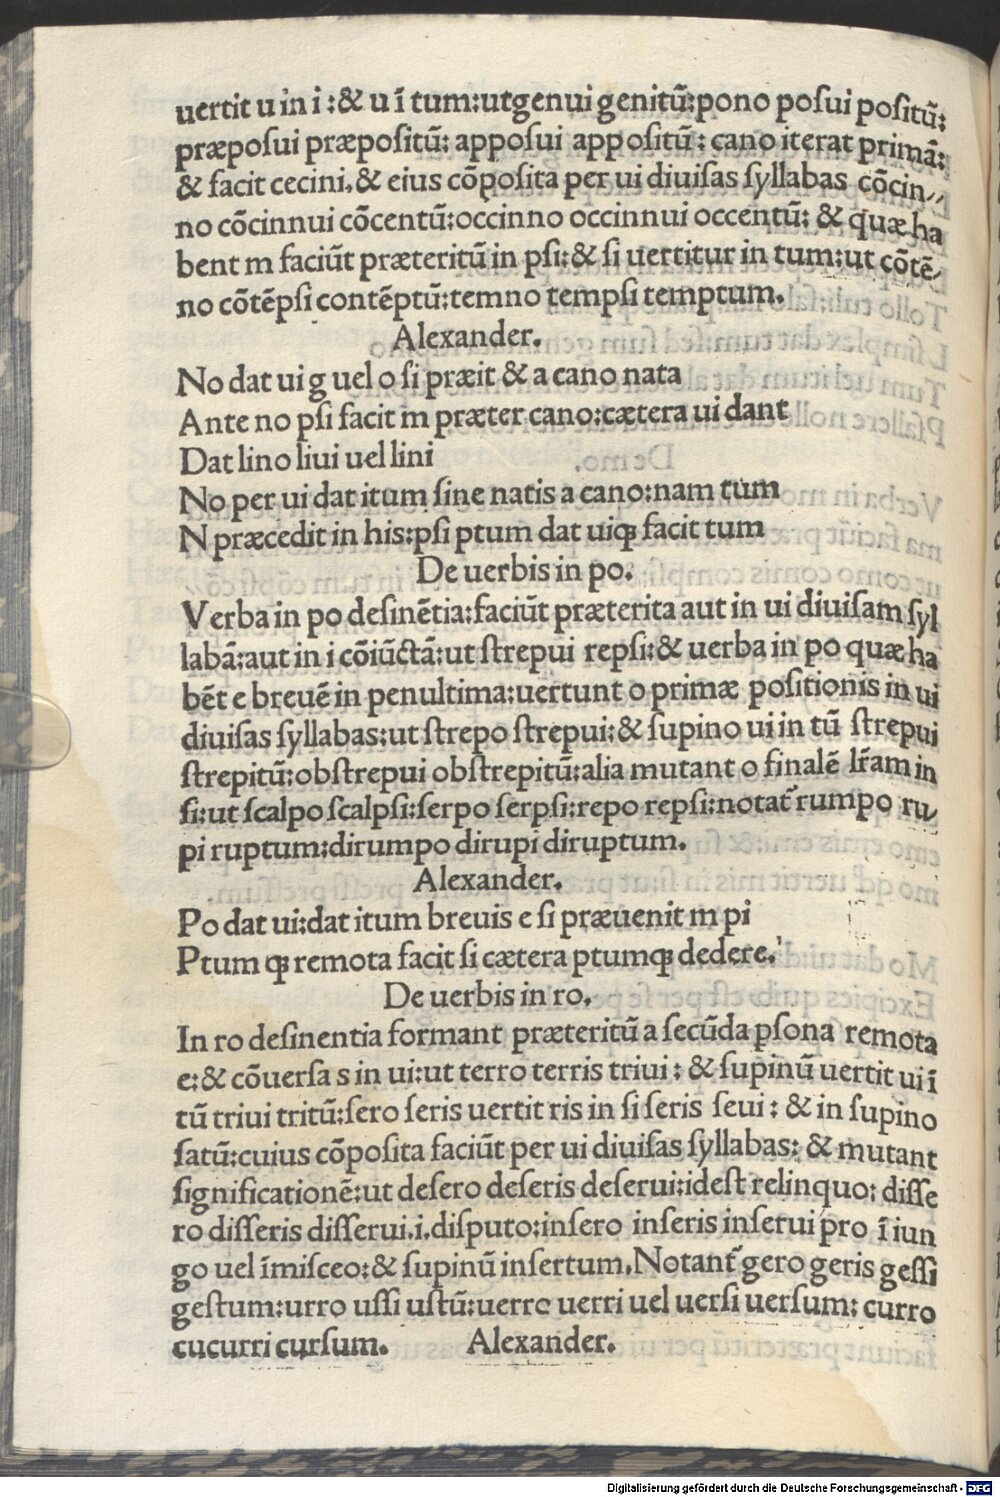 uertit u in i : & u ī tum:utgenui genitū:pono poſui poſitū:
præpoſui præpoſitū: appoſui appoſitū : cano iterat primā:
& facit cecini.& eius cōpoſita per ui diuiſas ſyllabas cōcin//
no cōcinnui cōcentū:occinno occinnui occentū: & quæ ha
bent m faciūt præteritū in pſi:& ſi uertitur in tum:ut cōtē/
no cōtēpſi contēptū:temno tempſi temptum.
Alexander.
No dat ui g uel o ſi præit & a cano nata
Ante no pſi facit m præter cano:cætera ui dant
Dat lino liui uel lini
No per ui dat itum ſine natis a cano:nam tum
N præcedit in his:pſi ptum dat uiqꝫ facit tum
De uerbis in po.
Verba in po deſinētia:faciūt præterita aut in ui diuiſam ſyl
labā:aut in i cōiūctā:ut ſtrepui repſi:& uerba in po quæ ha
bēt e breuē in penultima:uertunt o primæ poſitionis in ui
diuiſas ſyllabas:ut ſtrepo ſtrepui:& ſupino ui in tū ſtrepui
ſtrepitū:obſtrepui obſtrepitū:alia mutant o finalē lr̄am in
ſi:ut ſcalpo ſcalpſi:ſerpo ſerpſi:repo repſi:notat᷑ rumpo ru/
pi ruptum:dirumpo dirupi diruptum.
Alexander.
Po dat ui:dat itum breuis e ſi præuenit m pi
Ptum qꝫ remota facit ſi cætera ptumqꝫ dedere.
De uerbis in ro.
In ro deſinentia formant præteritū a ſecūda pſona remota
e:& cōuerſa s in ui:ut terro terris triui : & ſupinū uertit ui ī
tū triui tritū:ſero ſeris uertit ris in ſi ſeris ſeui : & in ſupino
ſatū:cuius cōpoſita faciūt per ui diuiſas ſyllabas: & mutant
ſignificationē:ut deſero deſeris deſerui:ideſt relinquo: diſſe
ro diſſeris diſſerui.i.diſputo:inſero inſeris inſerui pro ī iun
go uel īmiſceo:& ſupinū inſertum.Notant᷑ gero geris geſſi
geſtum:urro uſſi uſtū:uerro uerri uel uerſi uerſum: curro
cucurri curſum. Alexander.
Digitalisierung gefördert durch die Deutsche Forschungsgemeinschaft - DFG